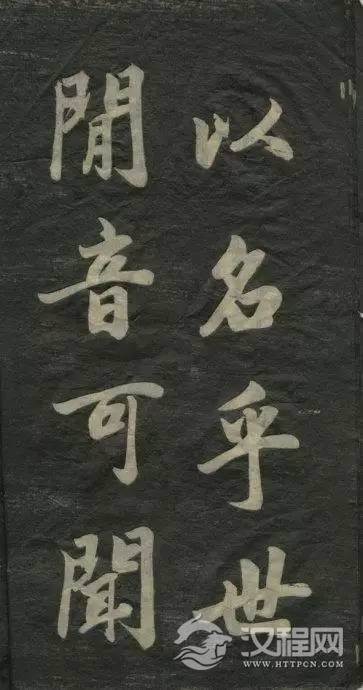 以名乎世
閒音可聞
汉程网
WWW.HTTPCN.COM